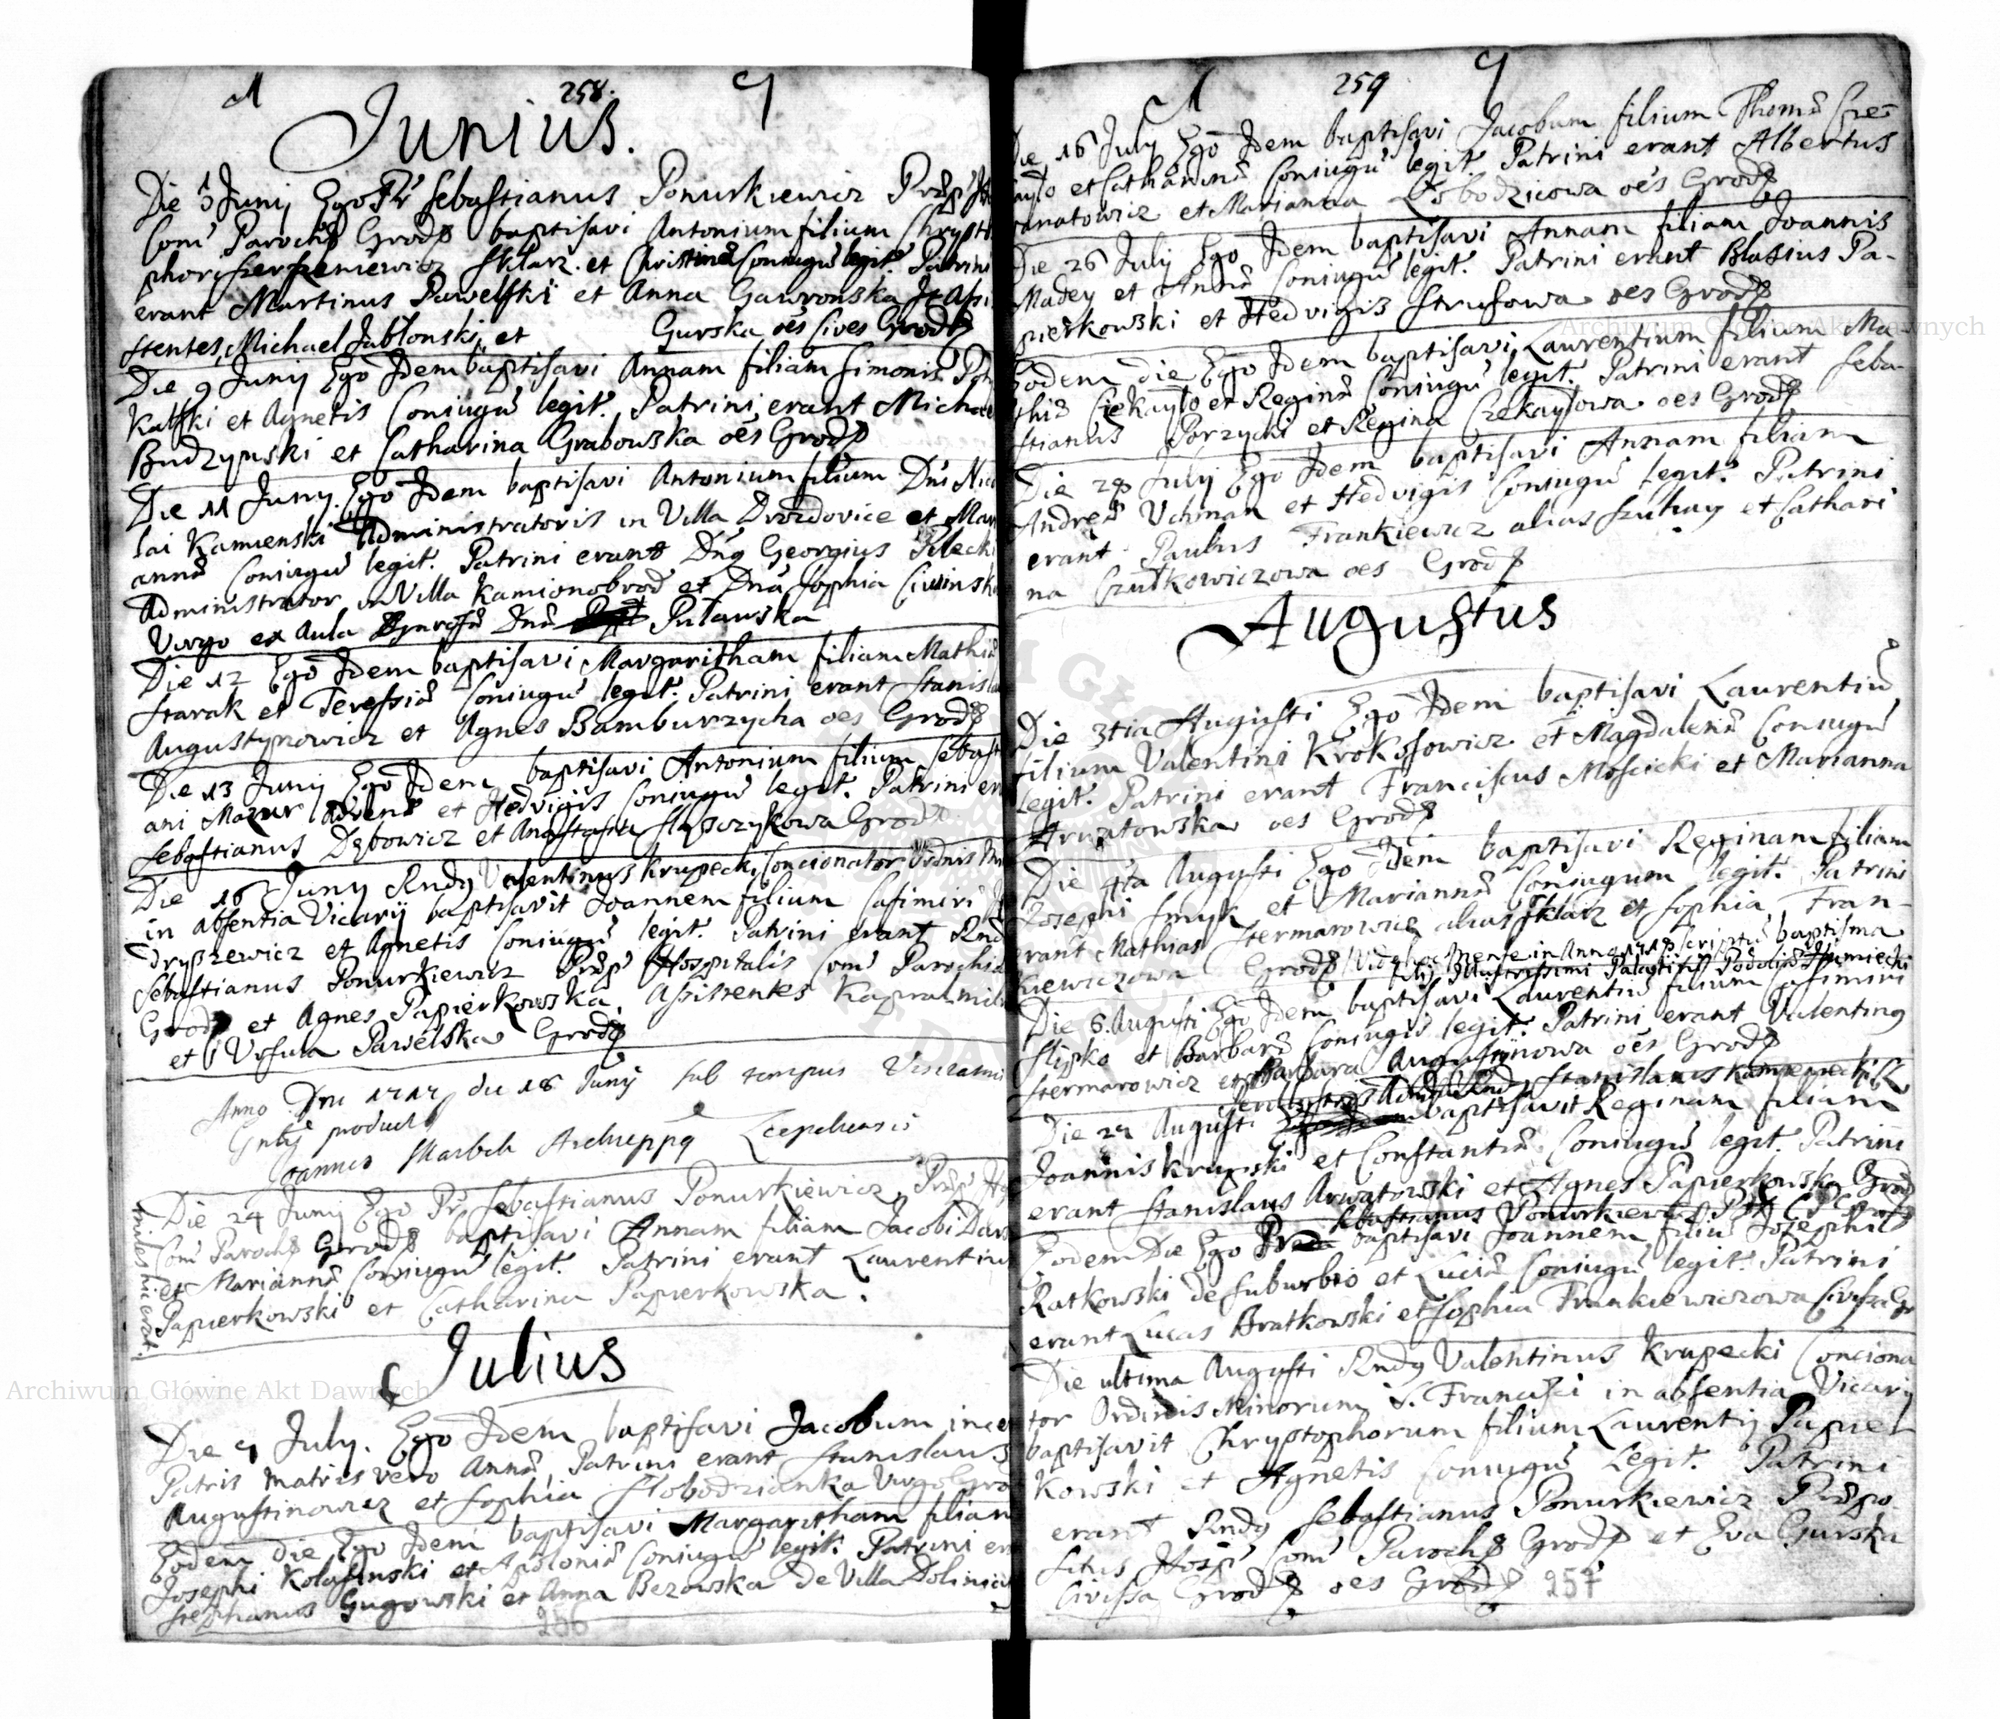 M 258. G
Junius.
Die 3 Junij Ego Pr Sebastianus Ponurkiewicz Præp
Com Paroch Grod baptisavi Antonium filium Chrysto
phori Szerszeniewicz Sklarz et Christinæ Coniugu legit. Patrini
erant Martinus Pawelski et Anna Gawronska It Assi
stentes Michael Jablonski et Gurska oes Cives Grod
Die 9 Junij Ego Idem baptisavi Annam filiam Simonis
Kalski et Agnetis Coniugu legit. Patrini erant Michael
Budzynski et Catharina Grabowska oes Grod
Die 11 Junij Ego Idem baptisavi Antonium filium Dni Nico
lai Kamienski Administratoris in Villa Drozdovice et Mari
annæ Coniugu legit. Patrini erant Dnus Georgius Pilecki
Administrator in Villa Kamionobrod et Dna Sophia Ciwinska
Virgo ex Aula Dnæ Pulawska
Die 12 Ego Idem baptisavi Margaritham filiam Mathiæ
Starak et Teressiæ Coniugu legit. Patrini erant Stanisla
Augustynowicz et Agnes Bamburzycha oes Grod
Die 13 Junij Ego Idem baptisavi Antonium filium Sebasti
ani Mazur Advenæ et Hedvigis Coniugu legit. Patrini er
Sebastianus Dębowicz et Anastasia Slusarzykowa Grod
Die 16 Junij Rndus Valentinus Krupecki Concionator Ordinis Min
in absentia Vicarij baptisavit Joannem filium Casimiri
dryszewicz et Agnetis Coniugu legit. Patrini erant Rnd
Sebastianus Ponurkiewicz Præp Hospitalis Com Parochi
Grod et Agnes Papierkowska Assistentes Kapral mil
et Ursula Pawelska Grod
Anno Dni 1717 die 18 Junij sub tempus
Gnlis
Joannes Skarbek Archieppus Leopoliensis
Die 24 Junij Ego Pr Sebastianus Ponurkiewicz Præp
Com Paroch Grod baptisavi Annam filiam Jacobi
et Mariannæ Coniugu legit. Patrini erant Laurentius
Papierkowski et Catharina Papierkowska.
miles hic erat.
Julius
Die 4 July. Ego Idem baptisavi Jacobum incer
Patris matris vero Annæ Patrini erant Stanislaus
Augustinowicz et Sophia Slobodzianka Virgo Gro
Eodem die Ego Idem baptisavi Margaritham filiam
Josephi Kolasinski et Apoloniæ Coniugu legit. Patrini er
Stephanus Gugowski et Anna Bezowska de Villa Dolinia
256
M 259 G
Die 16 July Ego Idem baptisavi Jacobum filium Thomæ Cze
kaylo et Catharinæ Coniugu legit. Patrini erant Albertus
et Marianna Lobodzicowa oes Grod
Die 26 July Ego Idem baptisavi Annam filiam Joannis
Madey et Annæ Coniugu legit. Patrini erant Blasius Pa-
pierkowski et Hedvigis Strusowa oes Grod
Eodem die Ego Idem baptisavi Laurentium filium Ma-
thiæ Czekaylo et Reginæ Coniugu legit. Patrini erant Seba-
stianus Porzycki et Regina Czekaylowa oes Grod
Die 29 July Ego Idem baptisavi Annam filiam
Andreæ Uchman et Hedvigis Coniugu legit. Patrini
erant Paulus Frankiewicz alias Szuhay et Cathari
na Czulkowiczowa oes Grod
Augustus
Die 3tia Augusti Ego Idem baptisavi Laurentiu
filium Valentini Krokosowicz et Magdalenæ Coniugu
legit. Patrini erant Franciscus Moscicki et Marianna
Arwatowska oes Grod
Die 4ta Augusti Ego Idem baptisavi Reginam filiam
Josephi Smyk et Mariannæ Coniugum legit. Patrini
erant Mathias Stermarowicz alias Sklarz et Sophia Fran-
kiewiczowa Grod Vide hoc mense in Anno 1719 scriptu baptisma
filij Illustrissimi Palatini Podoliæ Humiecki
Die 6 Augusti Ego Idem baptisavi Laurentiu filium Casimiri
Slipko et Barbaræ Coniugu legit. Patrini erant Valentinus
Stermarowicz et Barbara Augustinowa oes Grod
Stanislaus
Die 24 Augusti baptisavit Reginam filiam
Joannis Krupski et Constantiæ Coniugu legit. Patrini
erant Stanislaus Arwatowski et Agnes Papierkowska Grod
Sebastianus Ponurkiewicz
Eodem Die Ego baptisavi Joannem filiu Josephi
Ratkowski de suburbio et Luciæ Coniugu legit. Patrini
erant Lucas Bratkowski et Sophia Frankiewiczowa
Die ultima Augusti Rndus Valentinus Krupecki Conciona
tor Ordinis Minorum S. Francisci in absentia Vicarij
baptisavit Chrystophorum filium Laurentij Papier
kowski et Agnetis Coniugu Legit. Patrini
erant Rndus Sebastianus Ponurkiewicz Præpo
situs Hosp Com Paroch Grod et Eva Gurska
Civissa Grod oes Grod 257
Archiwum Główne Akt Dawnych
Archiwum Główne Akt Dawnych